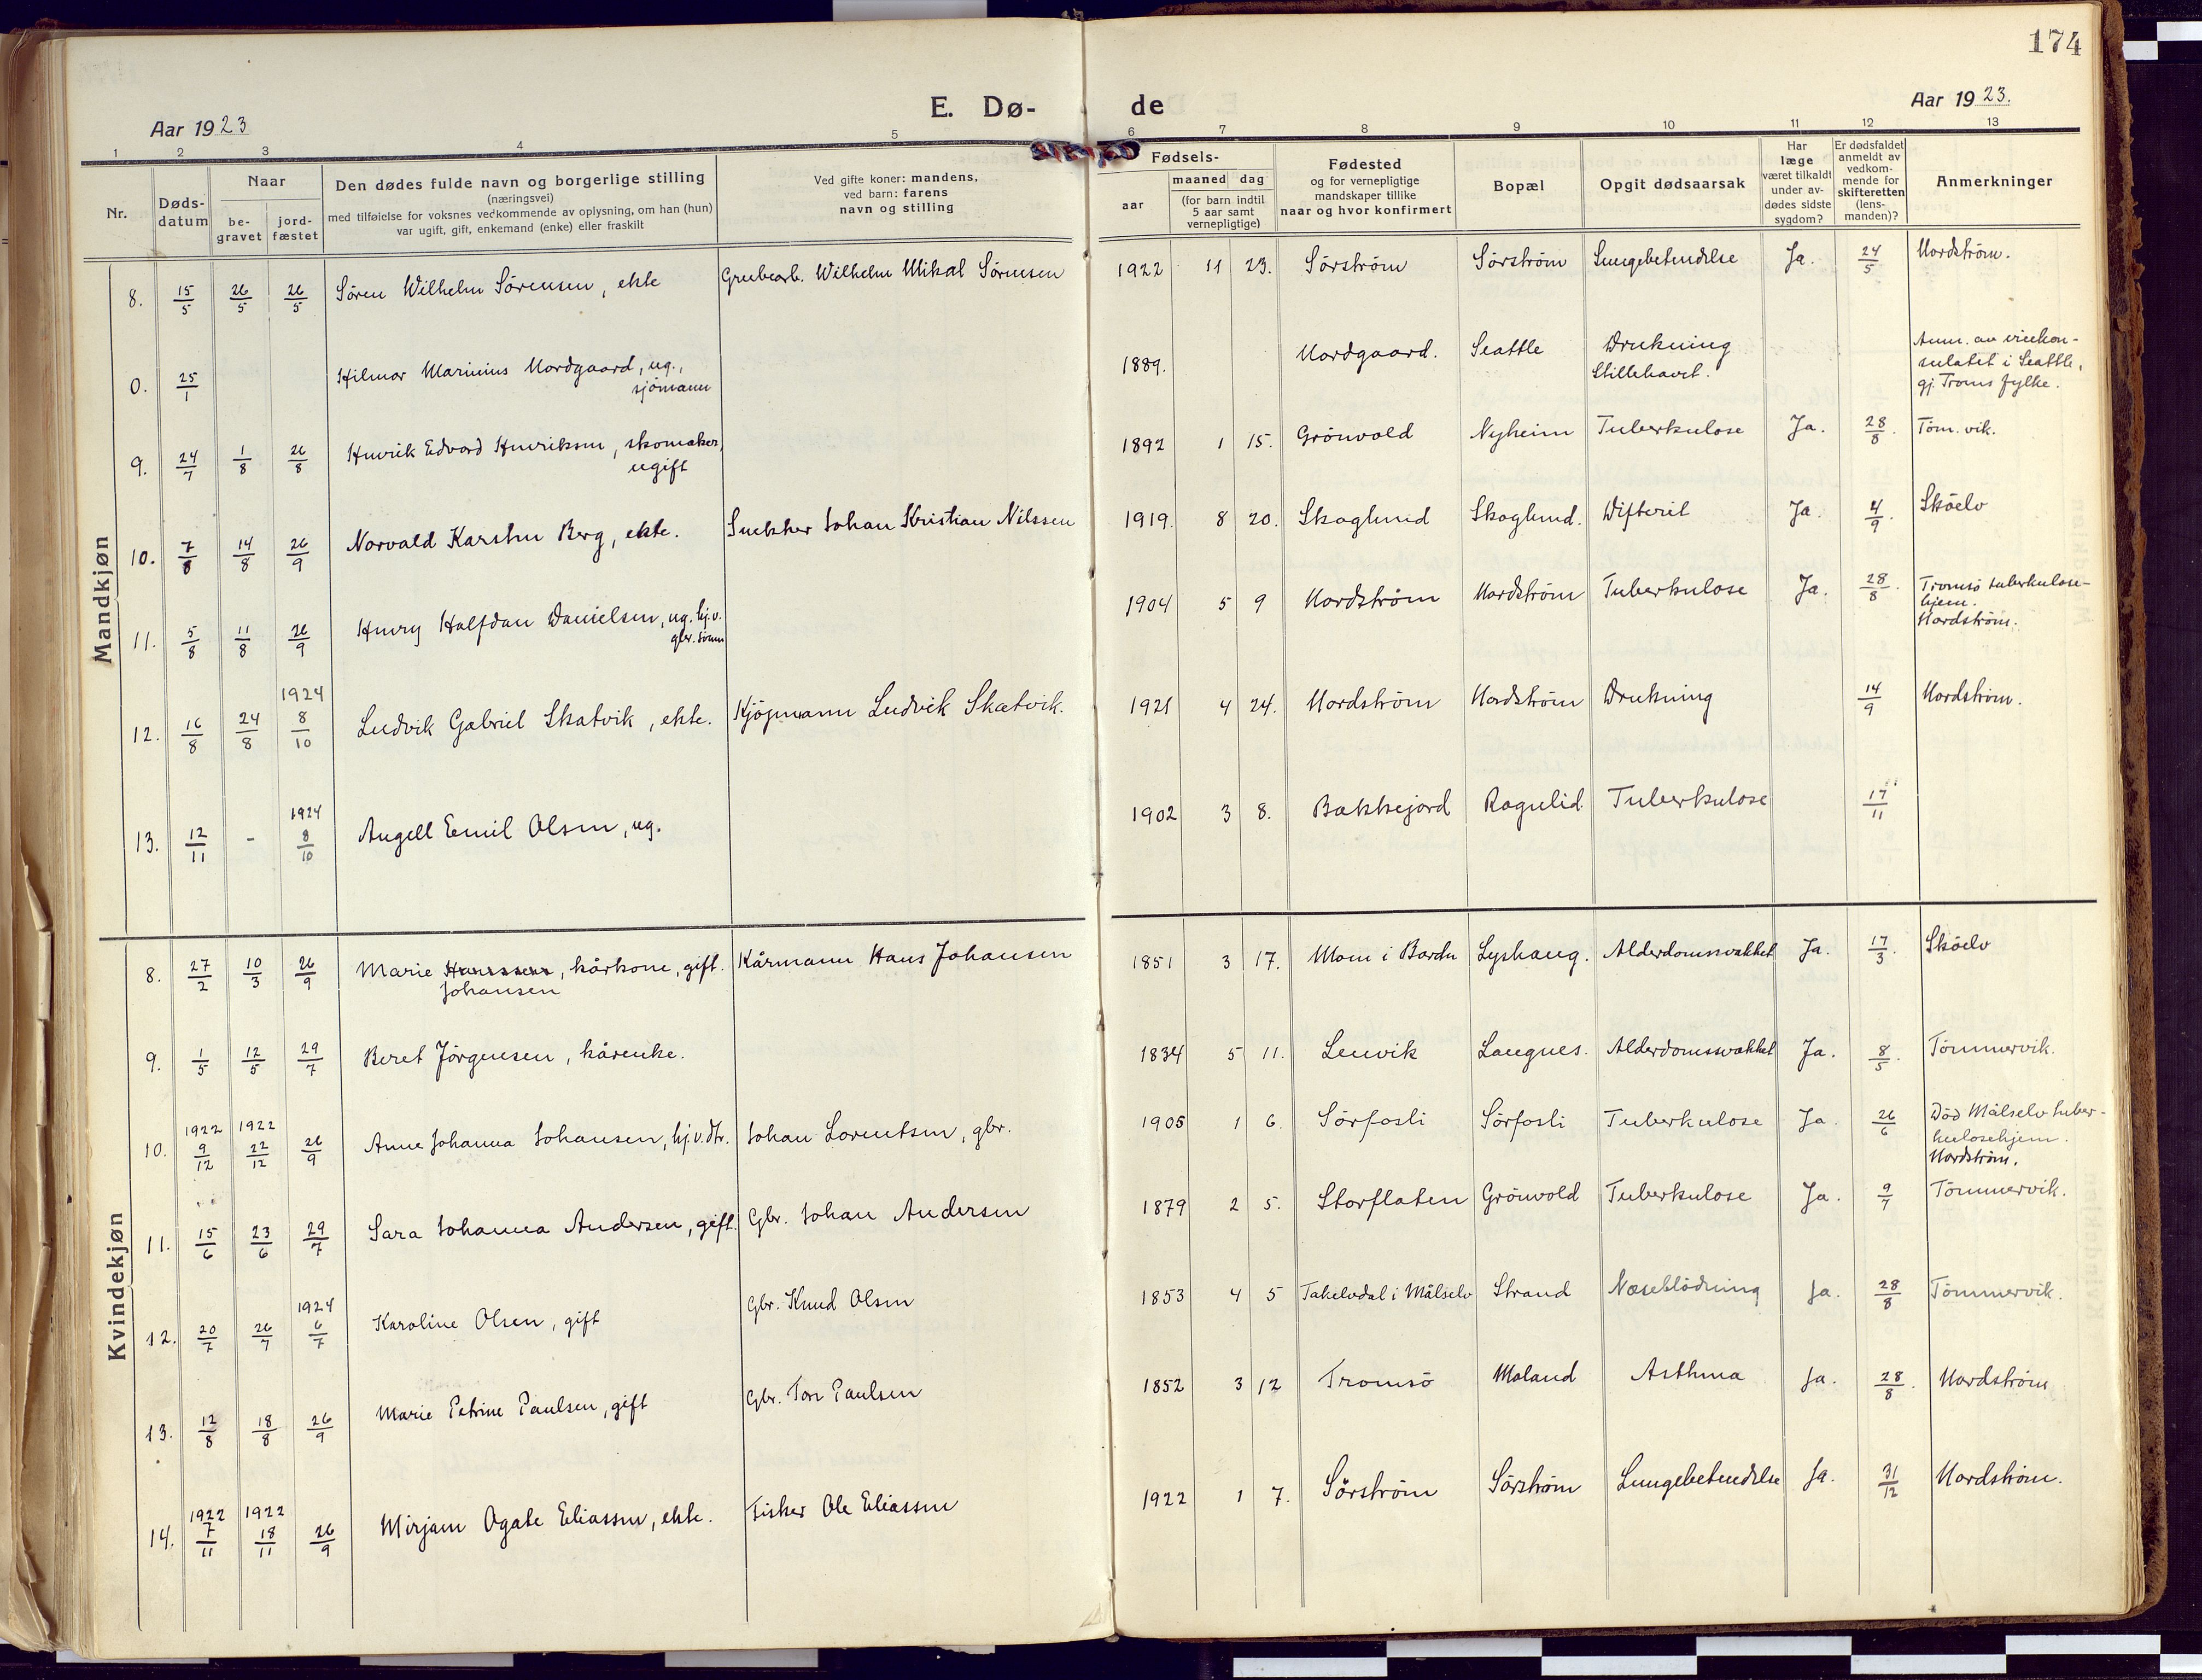 174
Aar 1923
E. Dø-
de
Aar 1923.
1 2 3 4 5 6 7 8 9 10 11 12 13
Nr.
Døds-
datum
Naar
be-
gravet
jord-
fæstet
Den dødes fulde navn og borgerlige stilling
(næringsvei)
med tilføielse for voksnes vedkommende av oplysning, om han (hun)
var ugift, gift, enkemand (enke) eller fraskilt
Ved gifte koner: mandens,
ved barn: farens
navn og stilling
Fødsels-
aar
maaned dag
(for barn indtil
5 aar samt
vernepligtige)
Fødested
og for vernepligtige
mandskaper tillike
naar og hvor konfirmert
Bopæl
Opgit dødsaarsak
Har
læge
været tilkaldt
under av-
dødes sidste
sygdom?
Er dødsfaldet
anmeldt av
vedkom-
mende for
skifteretten
(lens-
manden)?
Anmerkninger
Mandkjøn
8. 15/5 26/5 26/5 Søren Wilhelm Sørensen, ekte Grubearb. Wilhelm Mikal Sørensen 1922 11 23. Sørstrøm Sørstrøm Lungebetendelse Ja. 24/5 Nordstrøm.
0. 25/1 Hilmar Marinius Nordgaard, ug., 1889. Nordgaard. Seattle Drukning Anm. av vicekon-
sjömann Stillehavet. sulatet i Seattle,
gj. Troms fylke.
9. 24/7 1/8 26/8 Henrik Edvard Henriksen, skomaker, 1892 1 15. Grönvold Nyheim Tuberkulose Ja. 28/8. Töm.vik.
ugift
10. 7/8 14/8 26/9 Norvald Karsten Berg, ekte. Snekker Johan Kristian Nilssen 1919. 8 20. Skoglund Skoglund. Difterit Ja. 4/9. Sköelv
11. 5/8 11/8 26/9 Henry Halfdan Danielsen, ug. hj.v. 1904 5 9 Nordström Nordström Tuberkulose Ja. 28/8 Tromsö tuberkulose-
gbr. sönn hjem.
Nordström.
1924
12. 16/8 24/8 8/10 Ludvik Gabriel Skatvik, ekte. Kjöpmann Ludvik Skatvik. 1921 4 24. Nordström Nordström Drukning 14/9 Nordström.
1924
13. 12/11 - 8/10 Angell Emil Olsen, ug. 1902 3 8. Bakkejord Rognlid. Tuberkulose 17/11
Kvindekjøn
8. 27/2 10/3 26/9 Marie Hanssen, kårkone, gift. Kårmann Hans Johansen 1851 3 17. Mom i Bardu Lyshaug. Alderdomssvakket Ja. 17/3. Sköelv
Johansen
9. 1/5 12/5 29/7 Beret Jörgensen, kårenke. 1834 5 11. Lenvik Laugnes. Alderdomssvakket Ja. 8/5. Tömmervik.
1922 1922
10. 9/12 22/12 26/9 Anne Johanna Johansen, hj.v.dtr. Johan Lorentsen, gbr. 1905 1 6. Sörfosli Sörfosli Tuberkulose Ja. 26/6 Död Målselv tuber-
kulosehjem.
Nordström.
11. 15/6 23/6 29/7 Sara Johanna Andersen, gift. Gbr. Johan Andersen 1879 2 5. Storflaten Grönvold Tuberkulose Ja. 9/7 Tömmervik.
1924
12. 20/7 26/7 6/7 Karoline Olsen, gift Gbr. Knud Olsen 1853 4 5 Takelvdal i Målselv Strand Neseblödning Ja. 28/8 Tömmervik.
13. 12/8 18/8 26/9 Marie Petrine Paulsen, gift Gbr. Tor Paulsen 1852 3 12 Tromsö Moland Asthma Ja. 28/8. Nordström
1922 1922
14. 7/11 18/11 26/9 Mirjam Agate Eliassen, ekte. Fisker Ole Eliassen 1922 1 7. Sörström Sörström Lungebetendelse Ja. 31/12 Nordström.